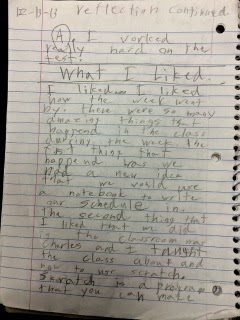 12-13-13 reflection continued
A, I worked
really hard on the
test!
What I liked.
I liked I liked
how the week went
by. there were so many
amazing things that
happend in the class
during the week. The
first thing that
happend was we
had a new idea
that we would use
a notebook to write
our schedule in.
The second thing that
I liked that we did
in the classroom was
Charles and I taught
the class about and
how to use scratch.
Scratch is a program
that you can make